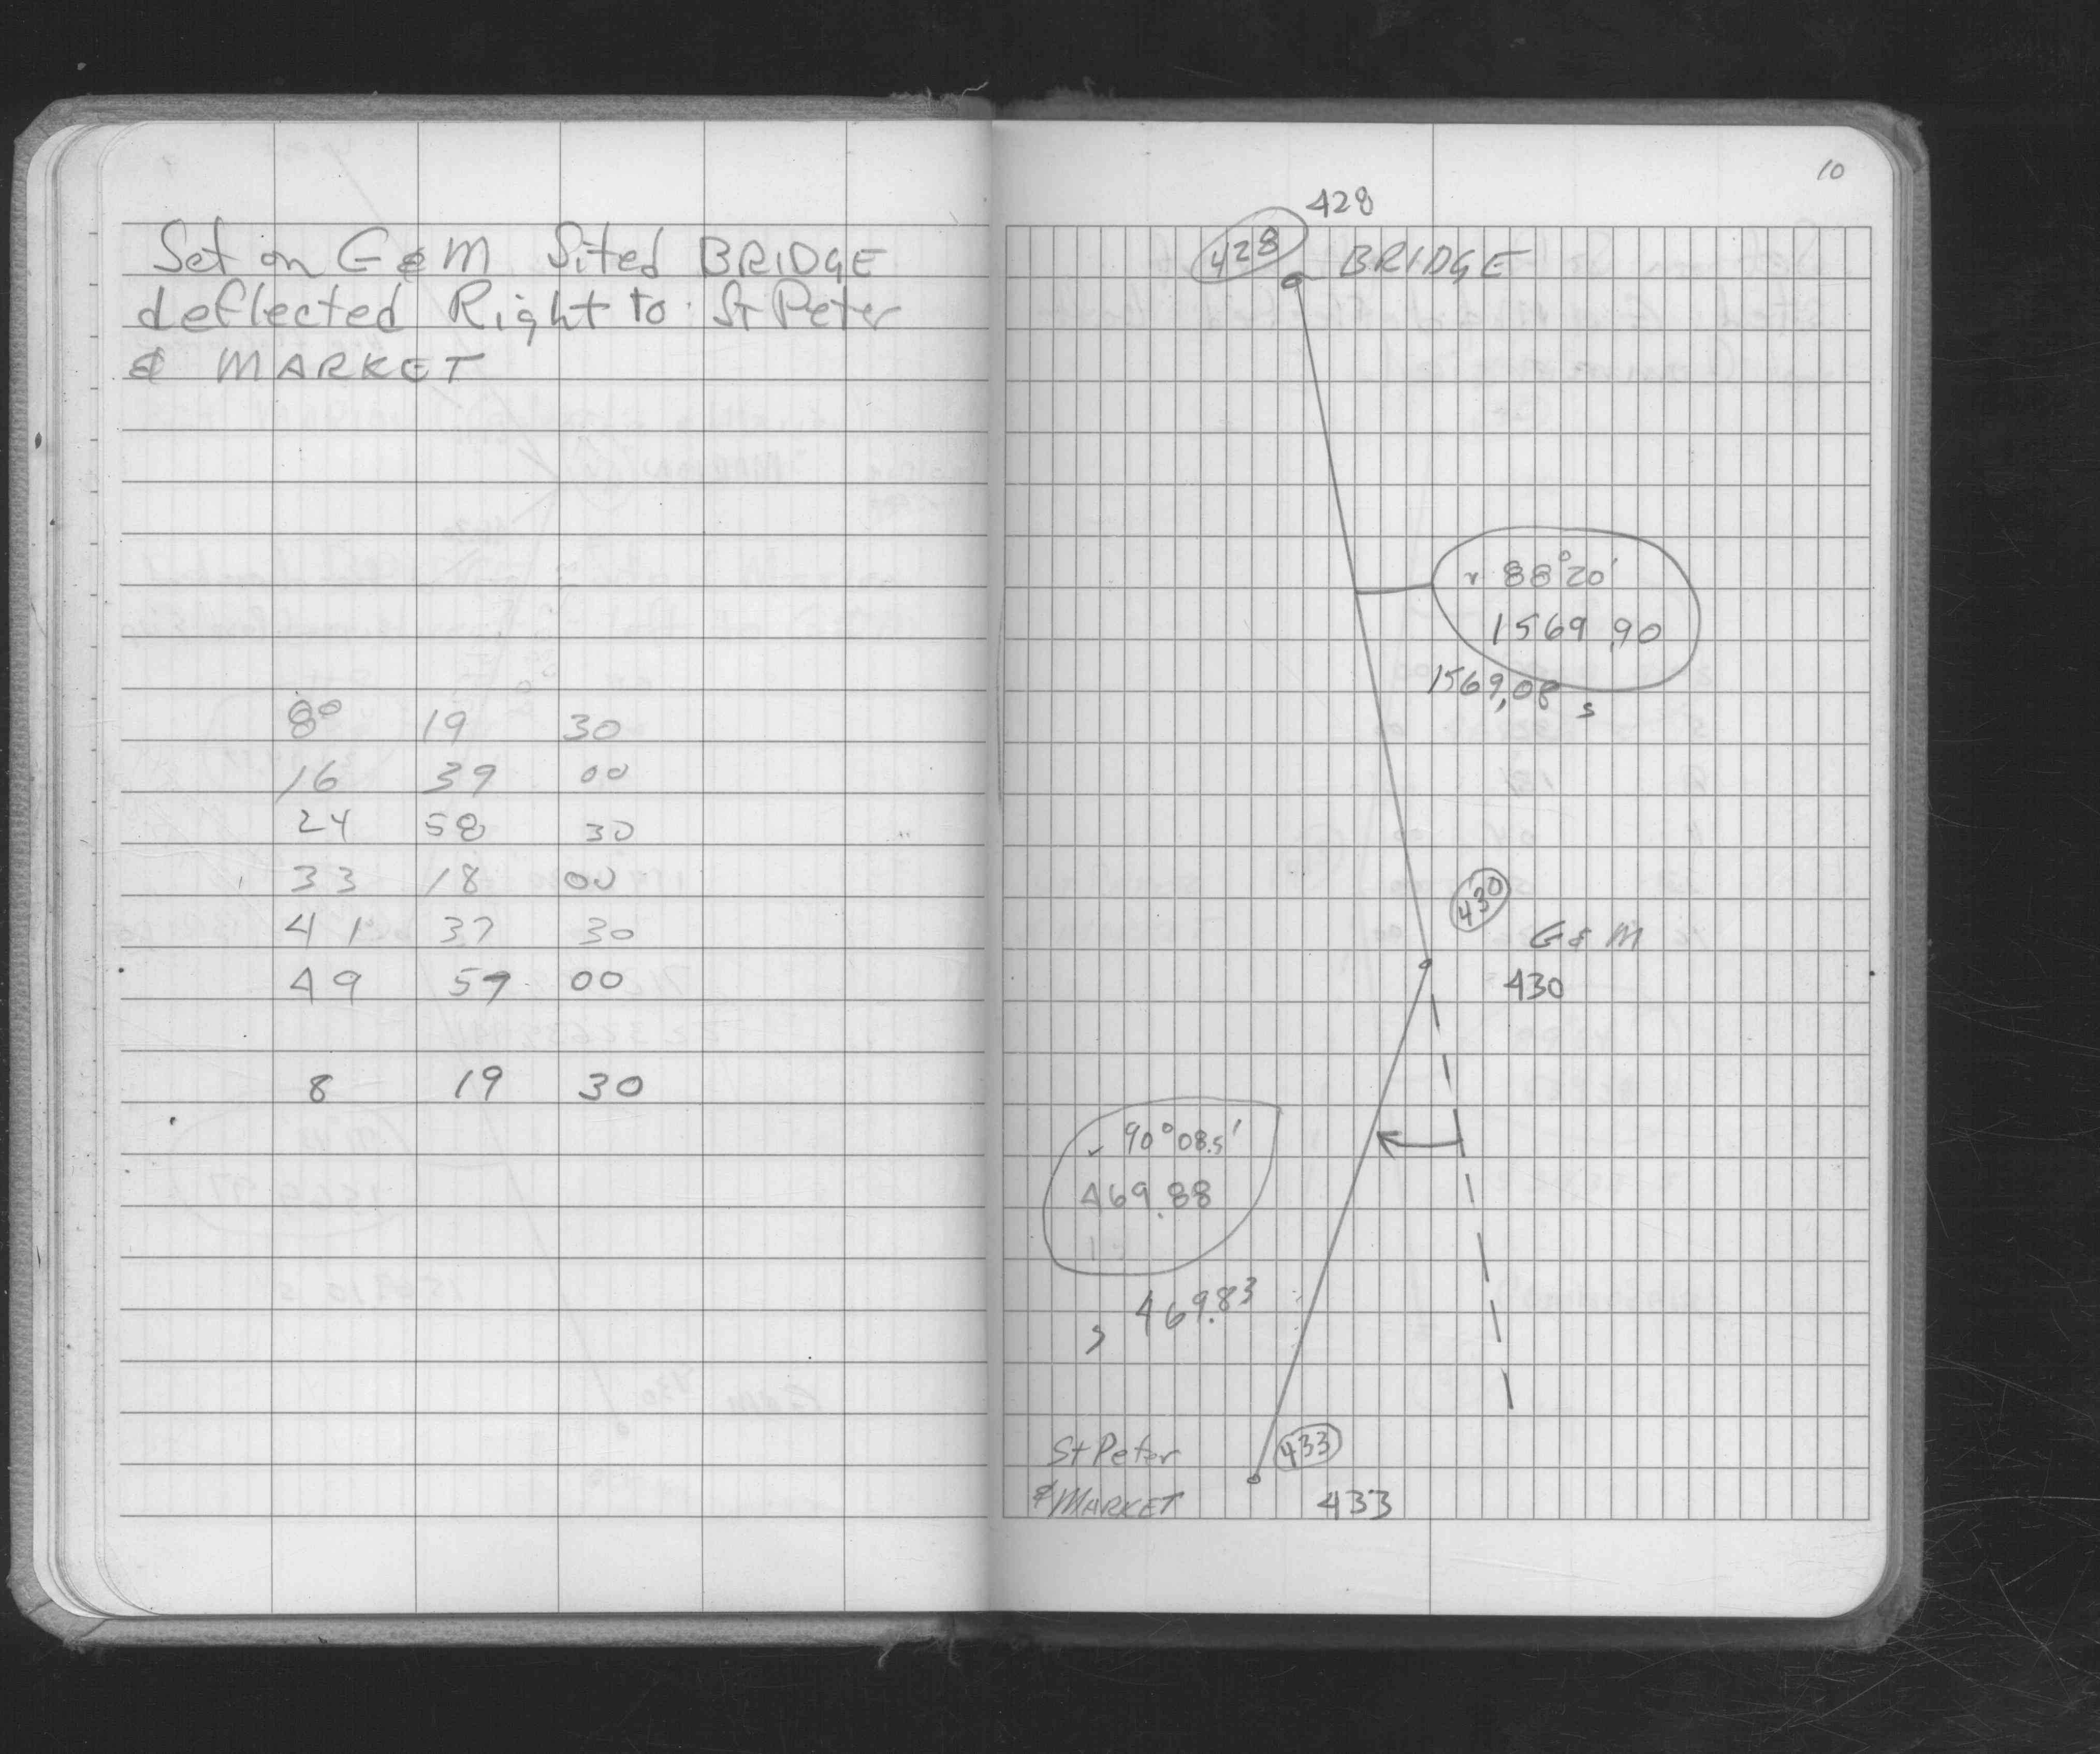 Set on G & M Sited BRIDGE
deflected Right to St Peter
& MARKET
8° 19 30
16 39 00
24 58 30
33 18 00
41 37 30
49 57 00
8 19 30
10
428
428 BRIDGE
88°20'
1569.90
1569.08 s
430
G & M
430
90°08.5'
469.88
s 469.83
St Peter 433
& MARKET 433